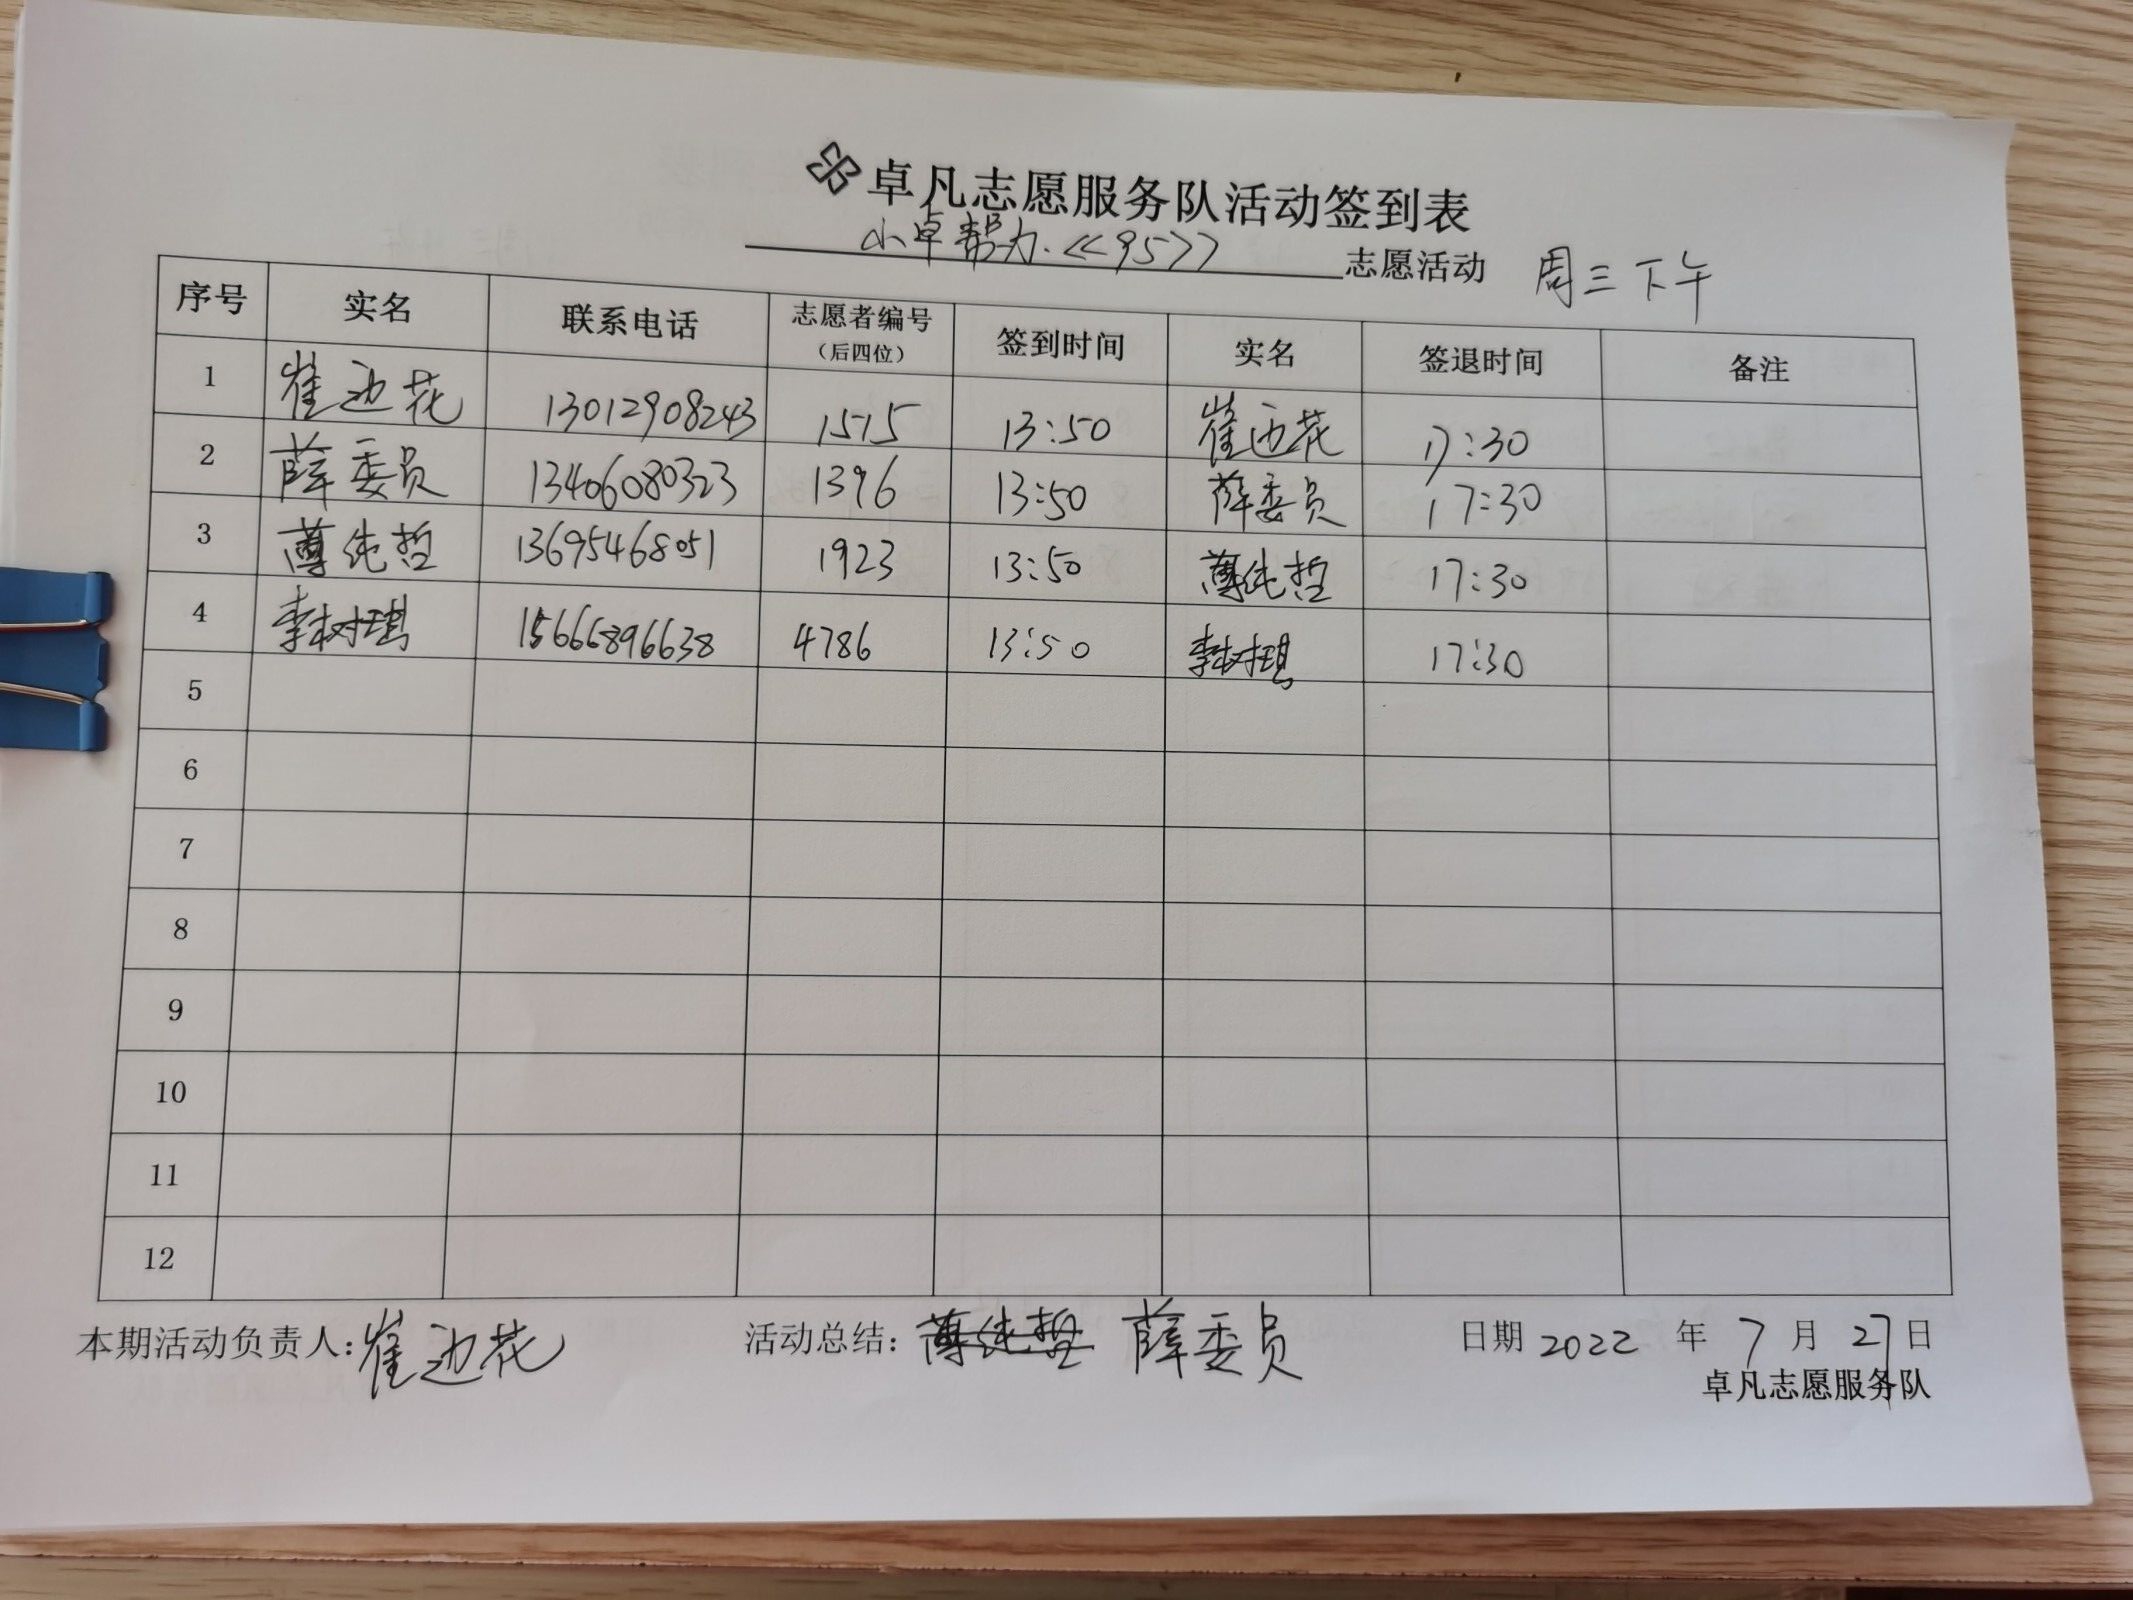 卓凡志愿服务队活动签到表
小卓帮办《95》 志愿活动 周三下午
序号 实名 联系电话 志愿者编号（后四位） 签到时间 实名 签退时间 备注
1 崔边花 13012908243 1515 13:50 崔边花 17:30
2 薛委员 13406080323 1396 13:50 薛委员 17:30
3 薄纯哲 13695468051 1923 13:50 薄纯哲 17:30
4 李树琪 15666896638 4786 13:50 李树琪 17:30
5
6
7
8
9
10
11
12
本期活动负责人：崔边花 活动总结：薄纯哲 薛委员 日期 2022 年 7 月 27 日
卓凡志愿服务队